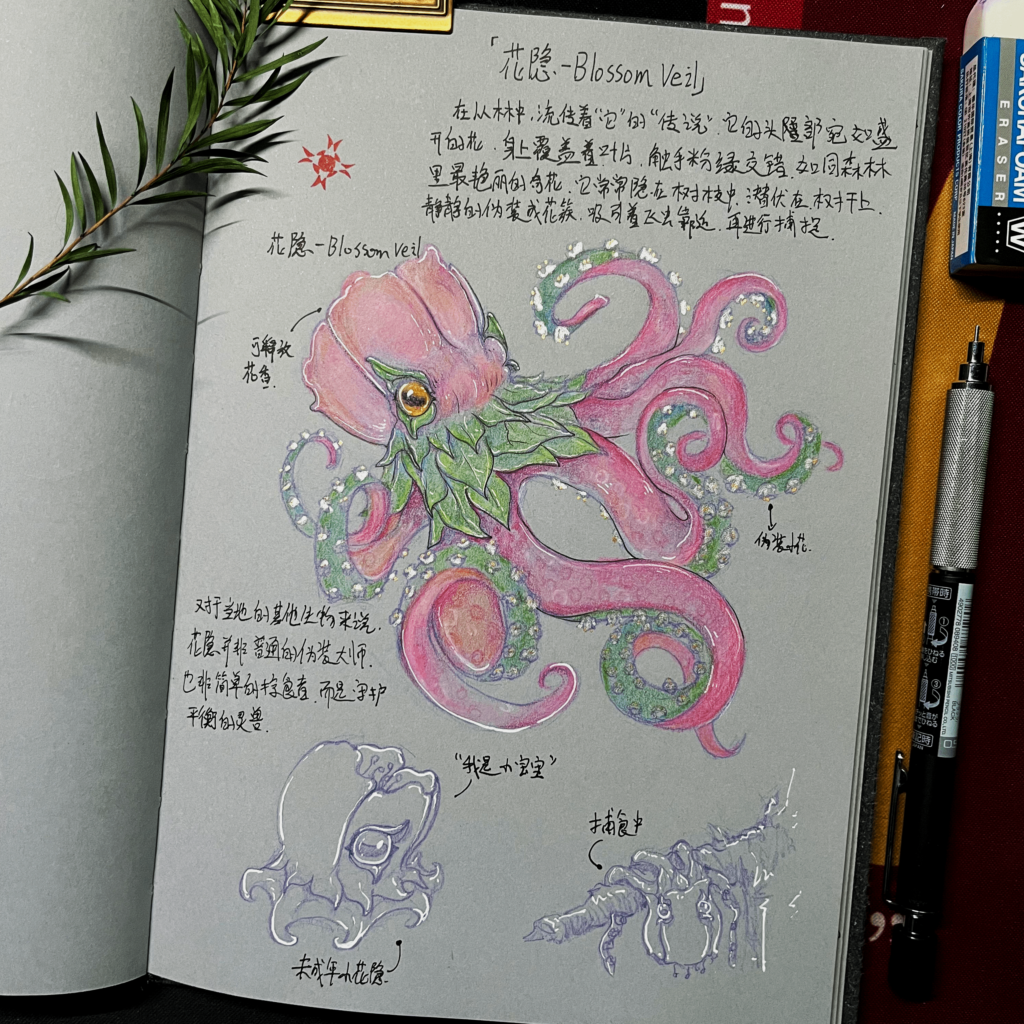 「花隐-Blossom Veil」
在丛林中,流传着“它”的“传说”.它的头隆部宛如盛
开的花.身上覆盖着叶片.触手粉绿交错.如同森林
里最艳丽的奇花.它常常隐在树枝中.潜伏在树干上.
静静的伪装成花簇.吸引着飞虫靠近.再进行捕捉.
花隐-Blossom Veil
可释放
花香.
伪装小花.
对于当地的其他生物来说.
花隐并非普通的伪装大师.
也非简单的掠食者.而是守护
平衡的灵兽.
“我是小宝宝”
捕食中
未成年小花隐.
SAKURA COLOR PRODUCTS
ERASER
W
n
携帯時
筆記時
BLACK